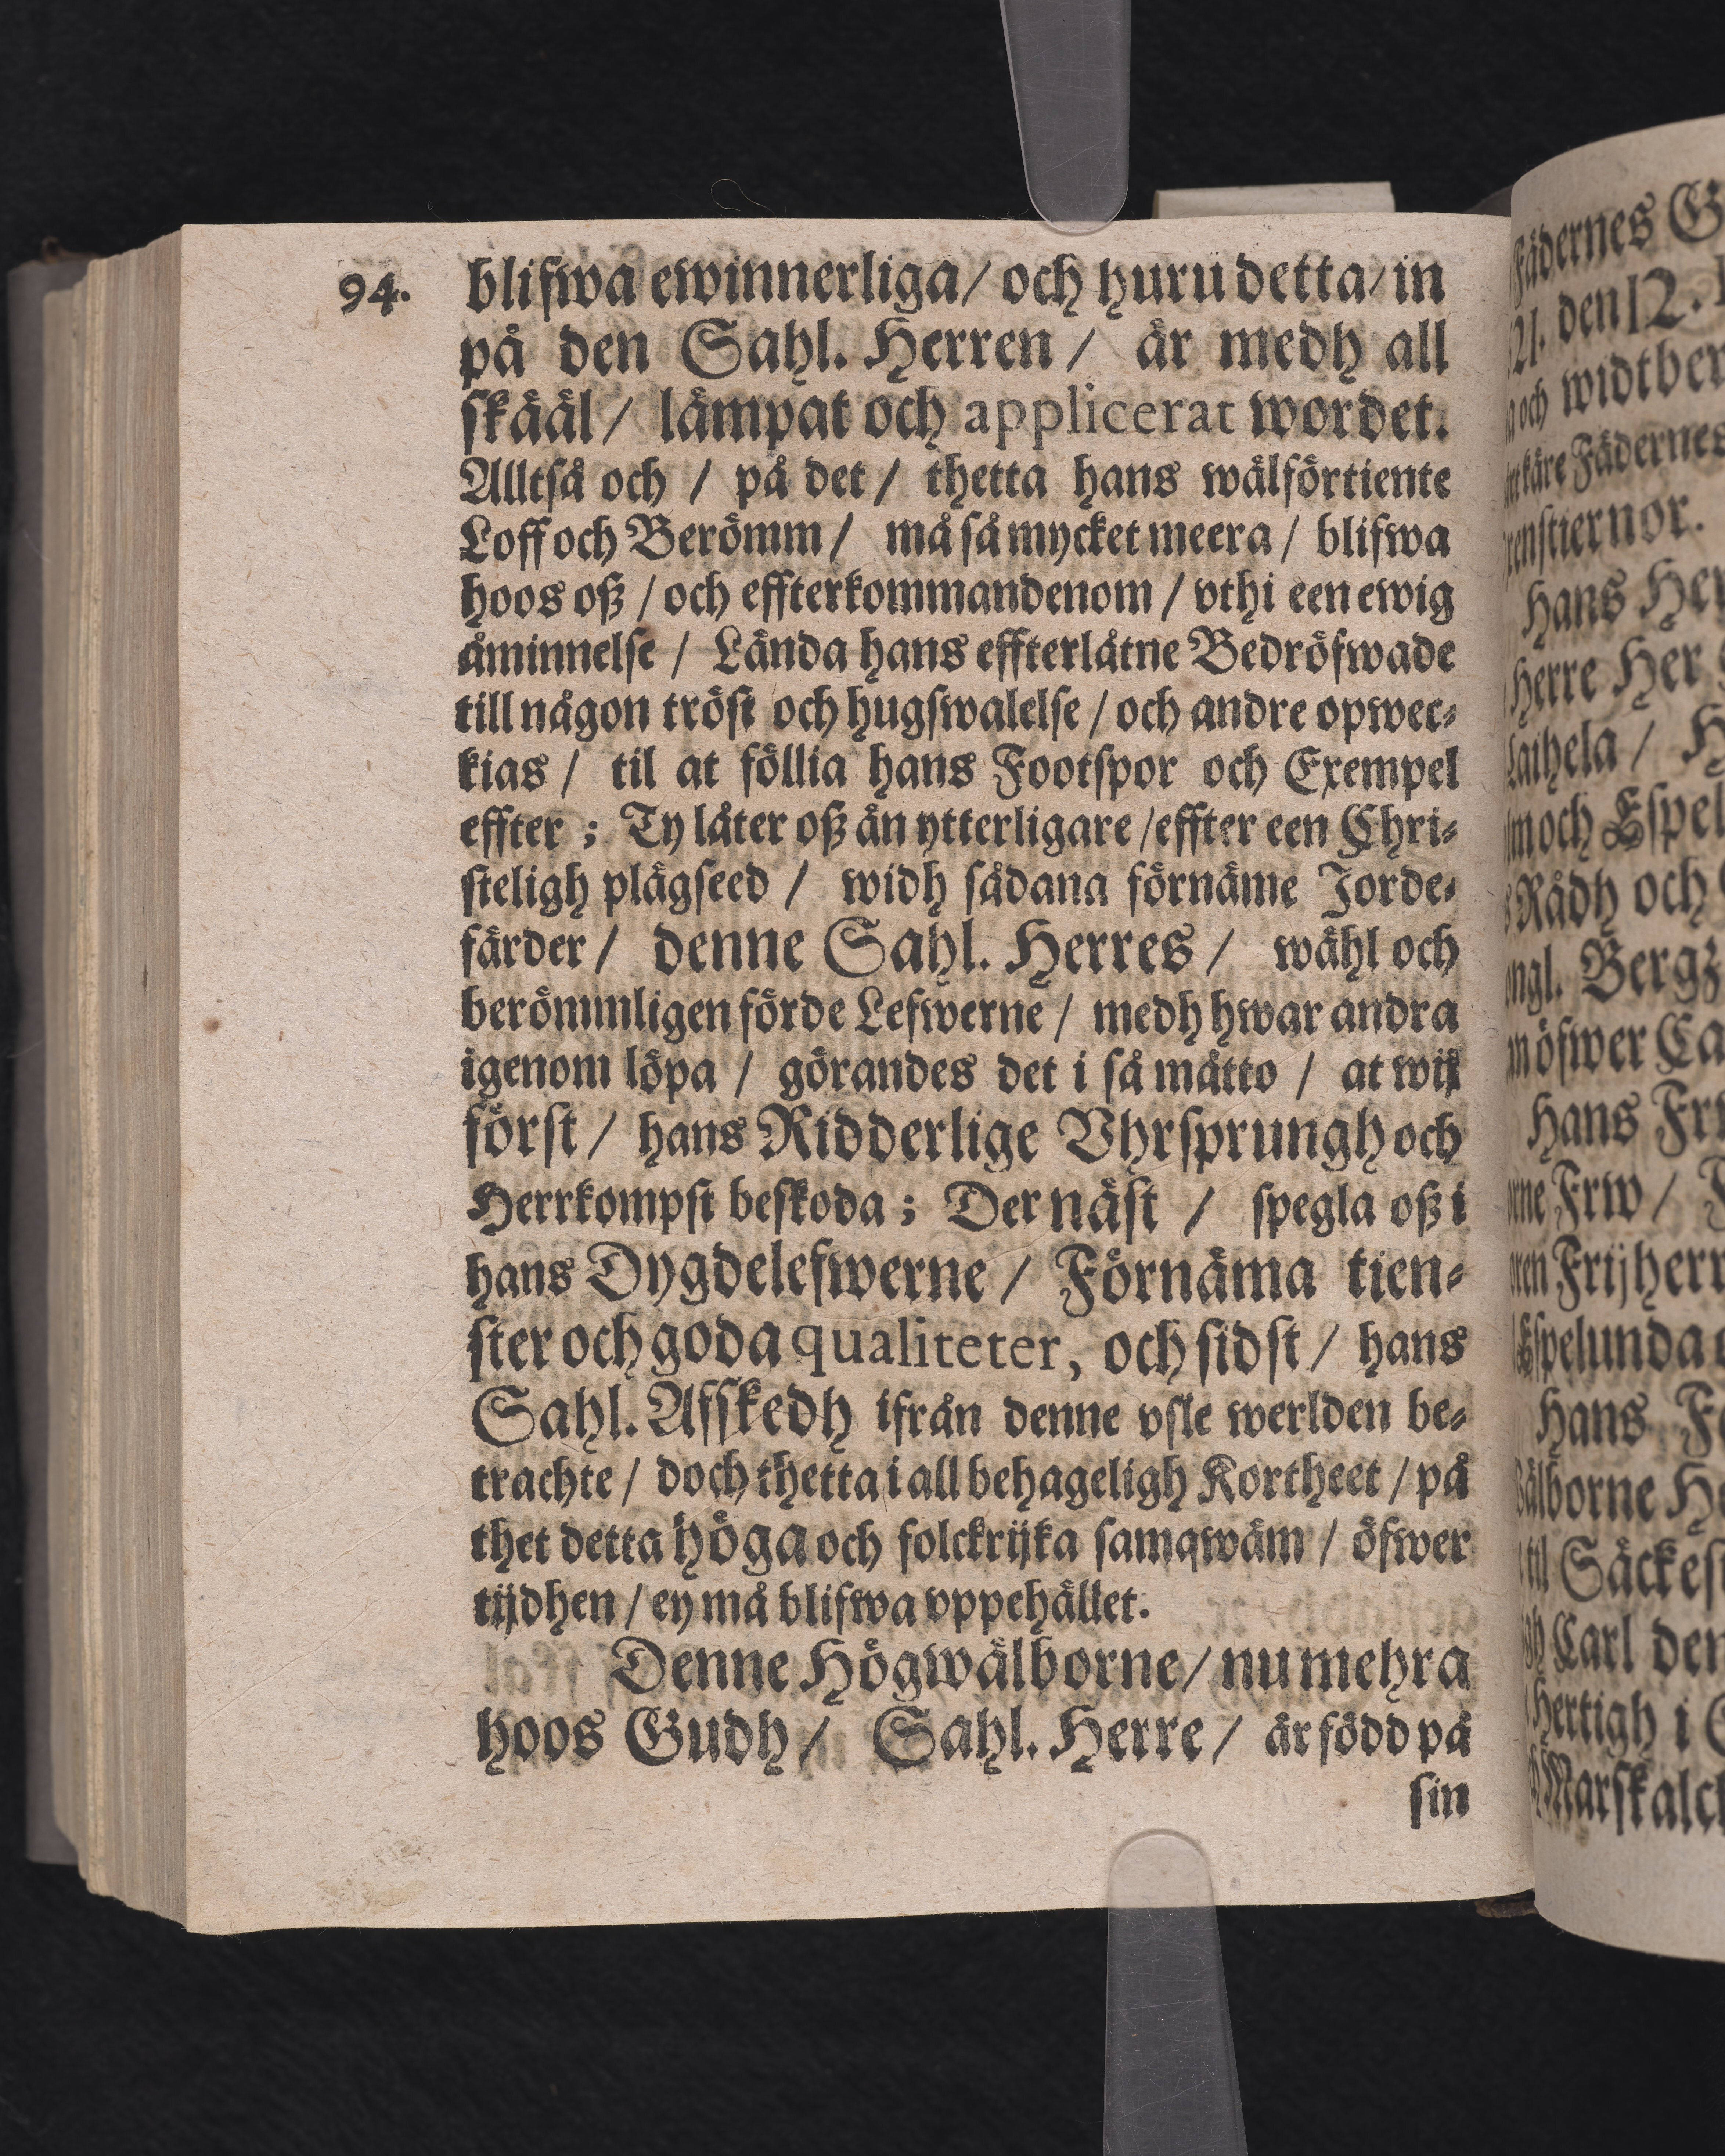 94.
blifwa ewinnerliga/ och huru detta/ in
på den Sahl. Herren / är medh all
skääl / lämpat och applicerat wordet.
Alltså och / på det / thetta hans wälförtiente
Loff och Berömm / må så mycket meera / blifwa
hoos oß / och effterkommandenom / vthi een ewig
åminnelse / Lända hans effterlåtne Bedröfwade
till någon tröst och hugswalelse / och andre opwec-
kias / til at föllia hans Footspor och Exempel
effter ; Ty låter oß än ytterligare /effter een Chri-
steligh plägseed / widh sådana förnäme Jorde-
färder / denne Sahl. Herres / wähl och
berömmligen förde Lefwerne / medh hwar andra
igenom löpa / görandes det i så måtto / at wij
först / hans Ridderlige Vhrsprungh och
Herrkompst beskoda ; Der näst / spegla oß i
hans Dygdelefwerne / Förnäma tien-
ster och goda qualiteter, och sidst / hans
Sahl. Afskedh ifrån denne vsle werlden be-
trachte / doch thetta i all behageligh Kortheet / på
thet detta höga och folckrijka samqwäm / öfwer
tijdhen / ey må blifwa vppehållet.
Denne Högwälborne/ nu mehra
hoos Gudh / Sahl. Herre / är född på
sin
Fädernes
den 12.
och widtber
käre Fädernes
Hans Her
Herre Her
och Espel
Rådh och
Bergz
öfwer Ca
Hans Frw
Frw /
Frijherr
Hans
Säckes
Carl den
Hertigh i
Marskalck